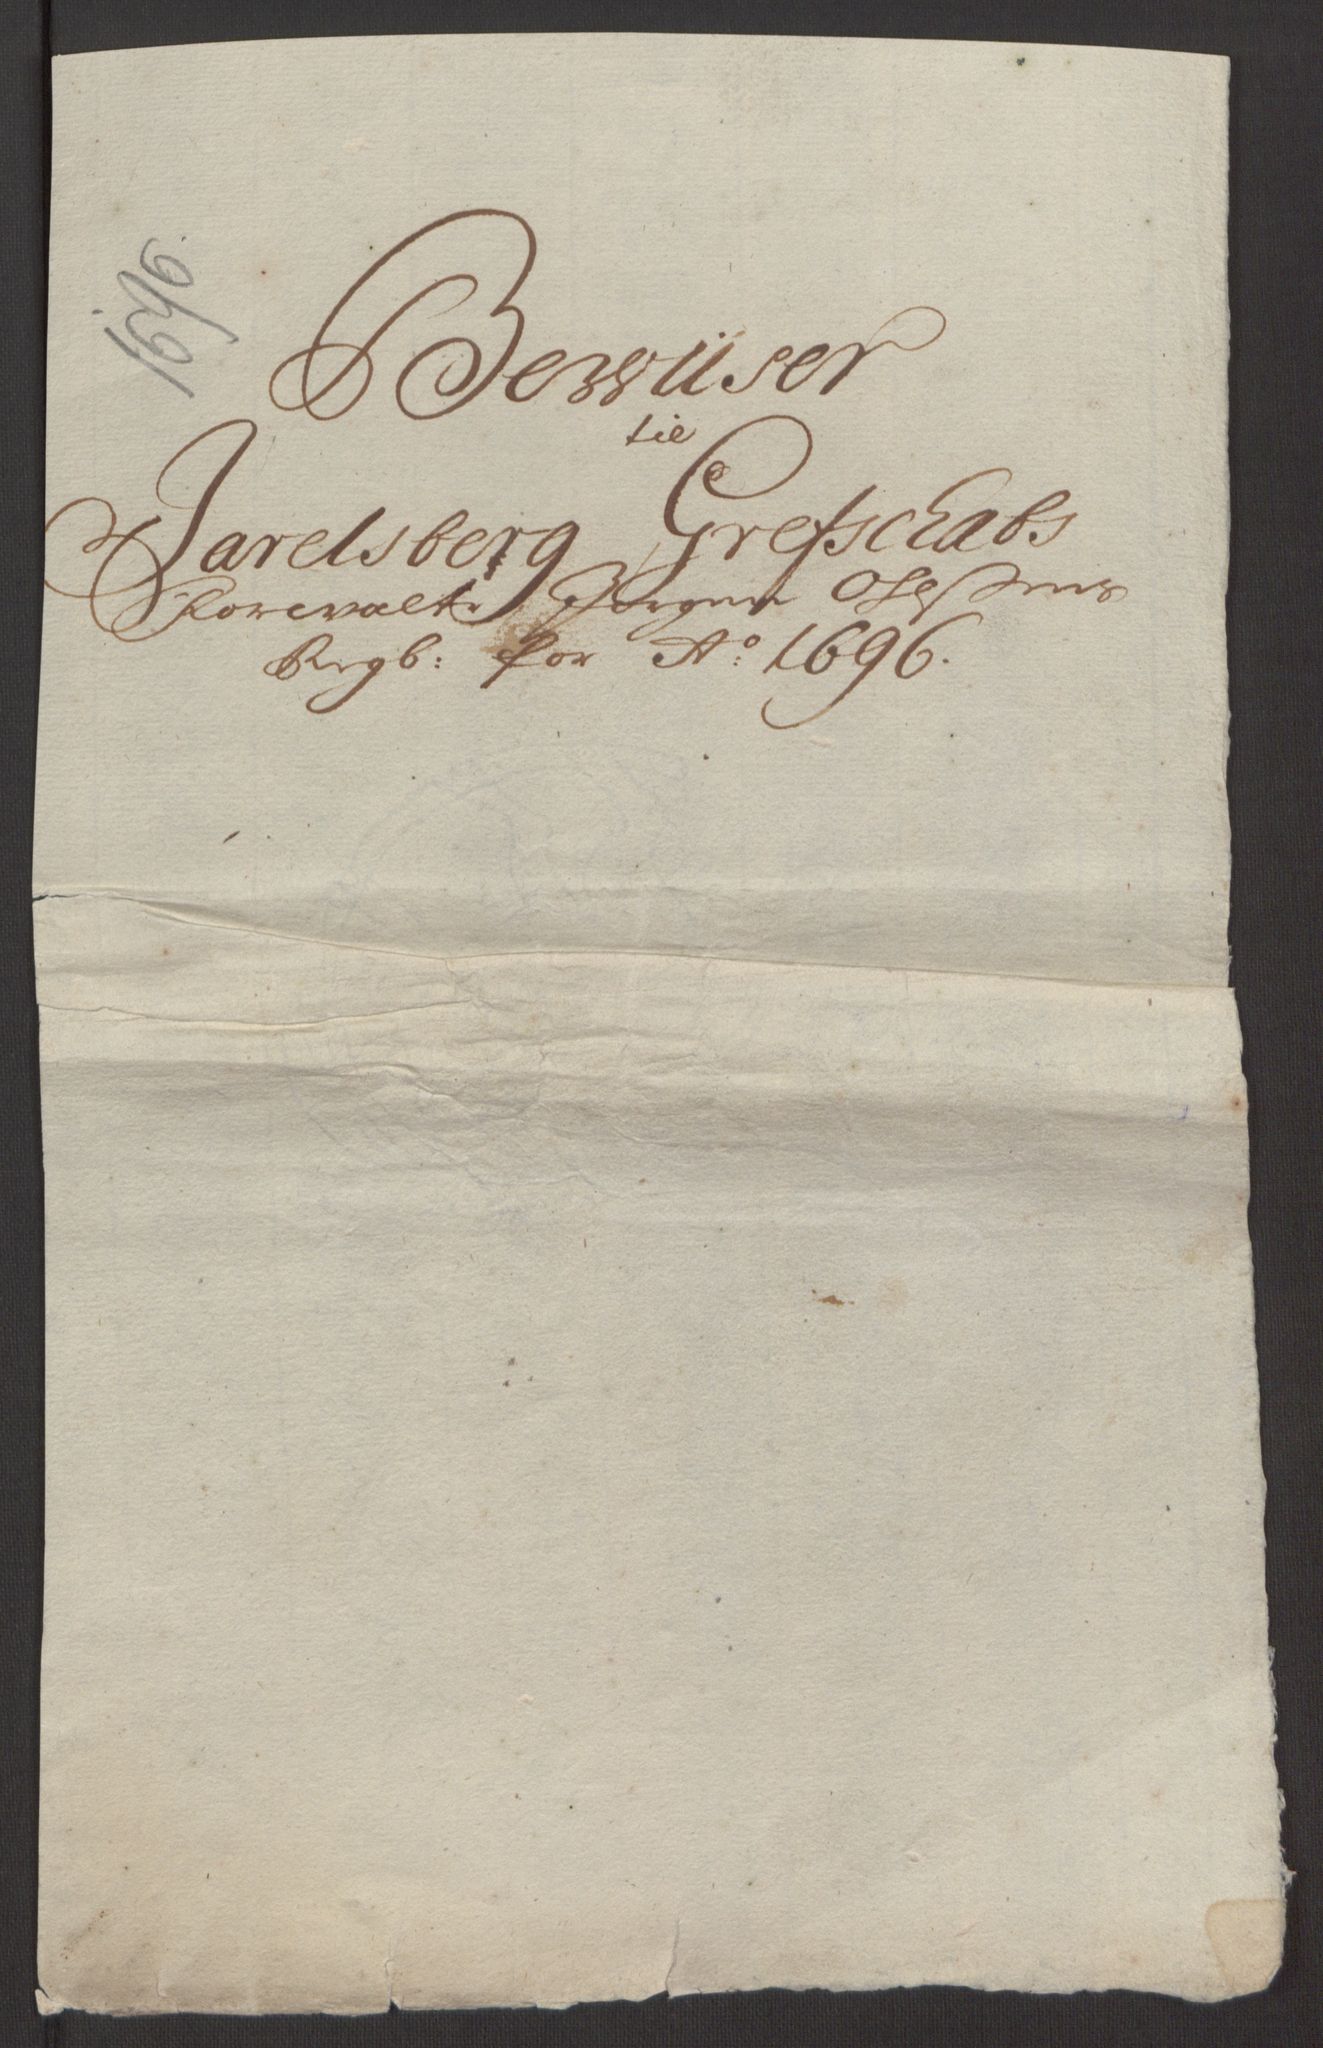 1696.
Bewiiser
til
Jarelsberg Grefschabs
Forwalter Jørgen Olessens
Regb: for Ao: 1696.